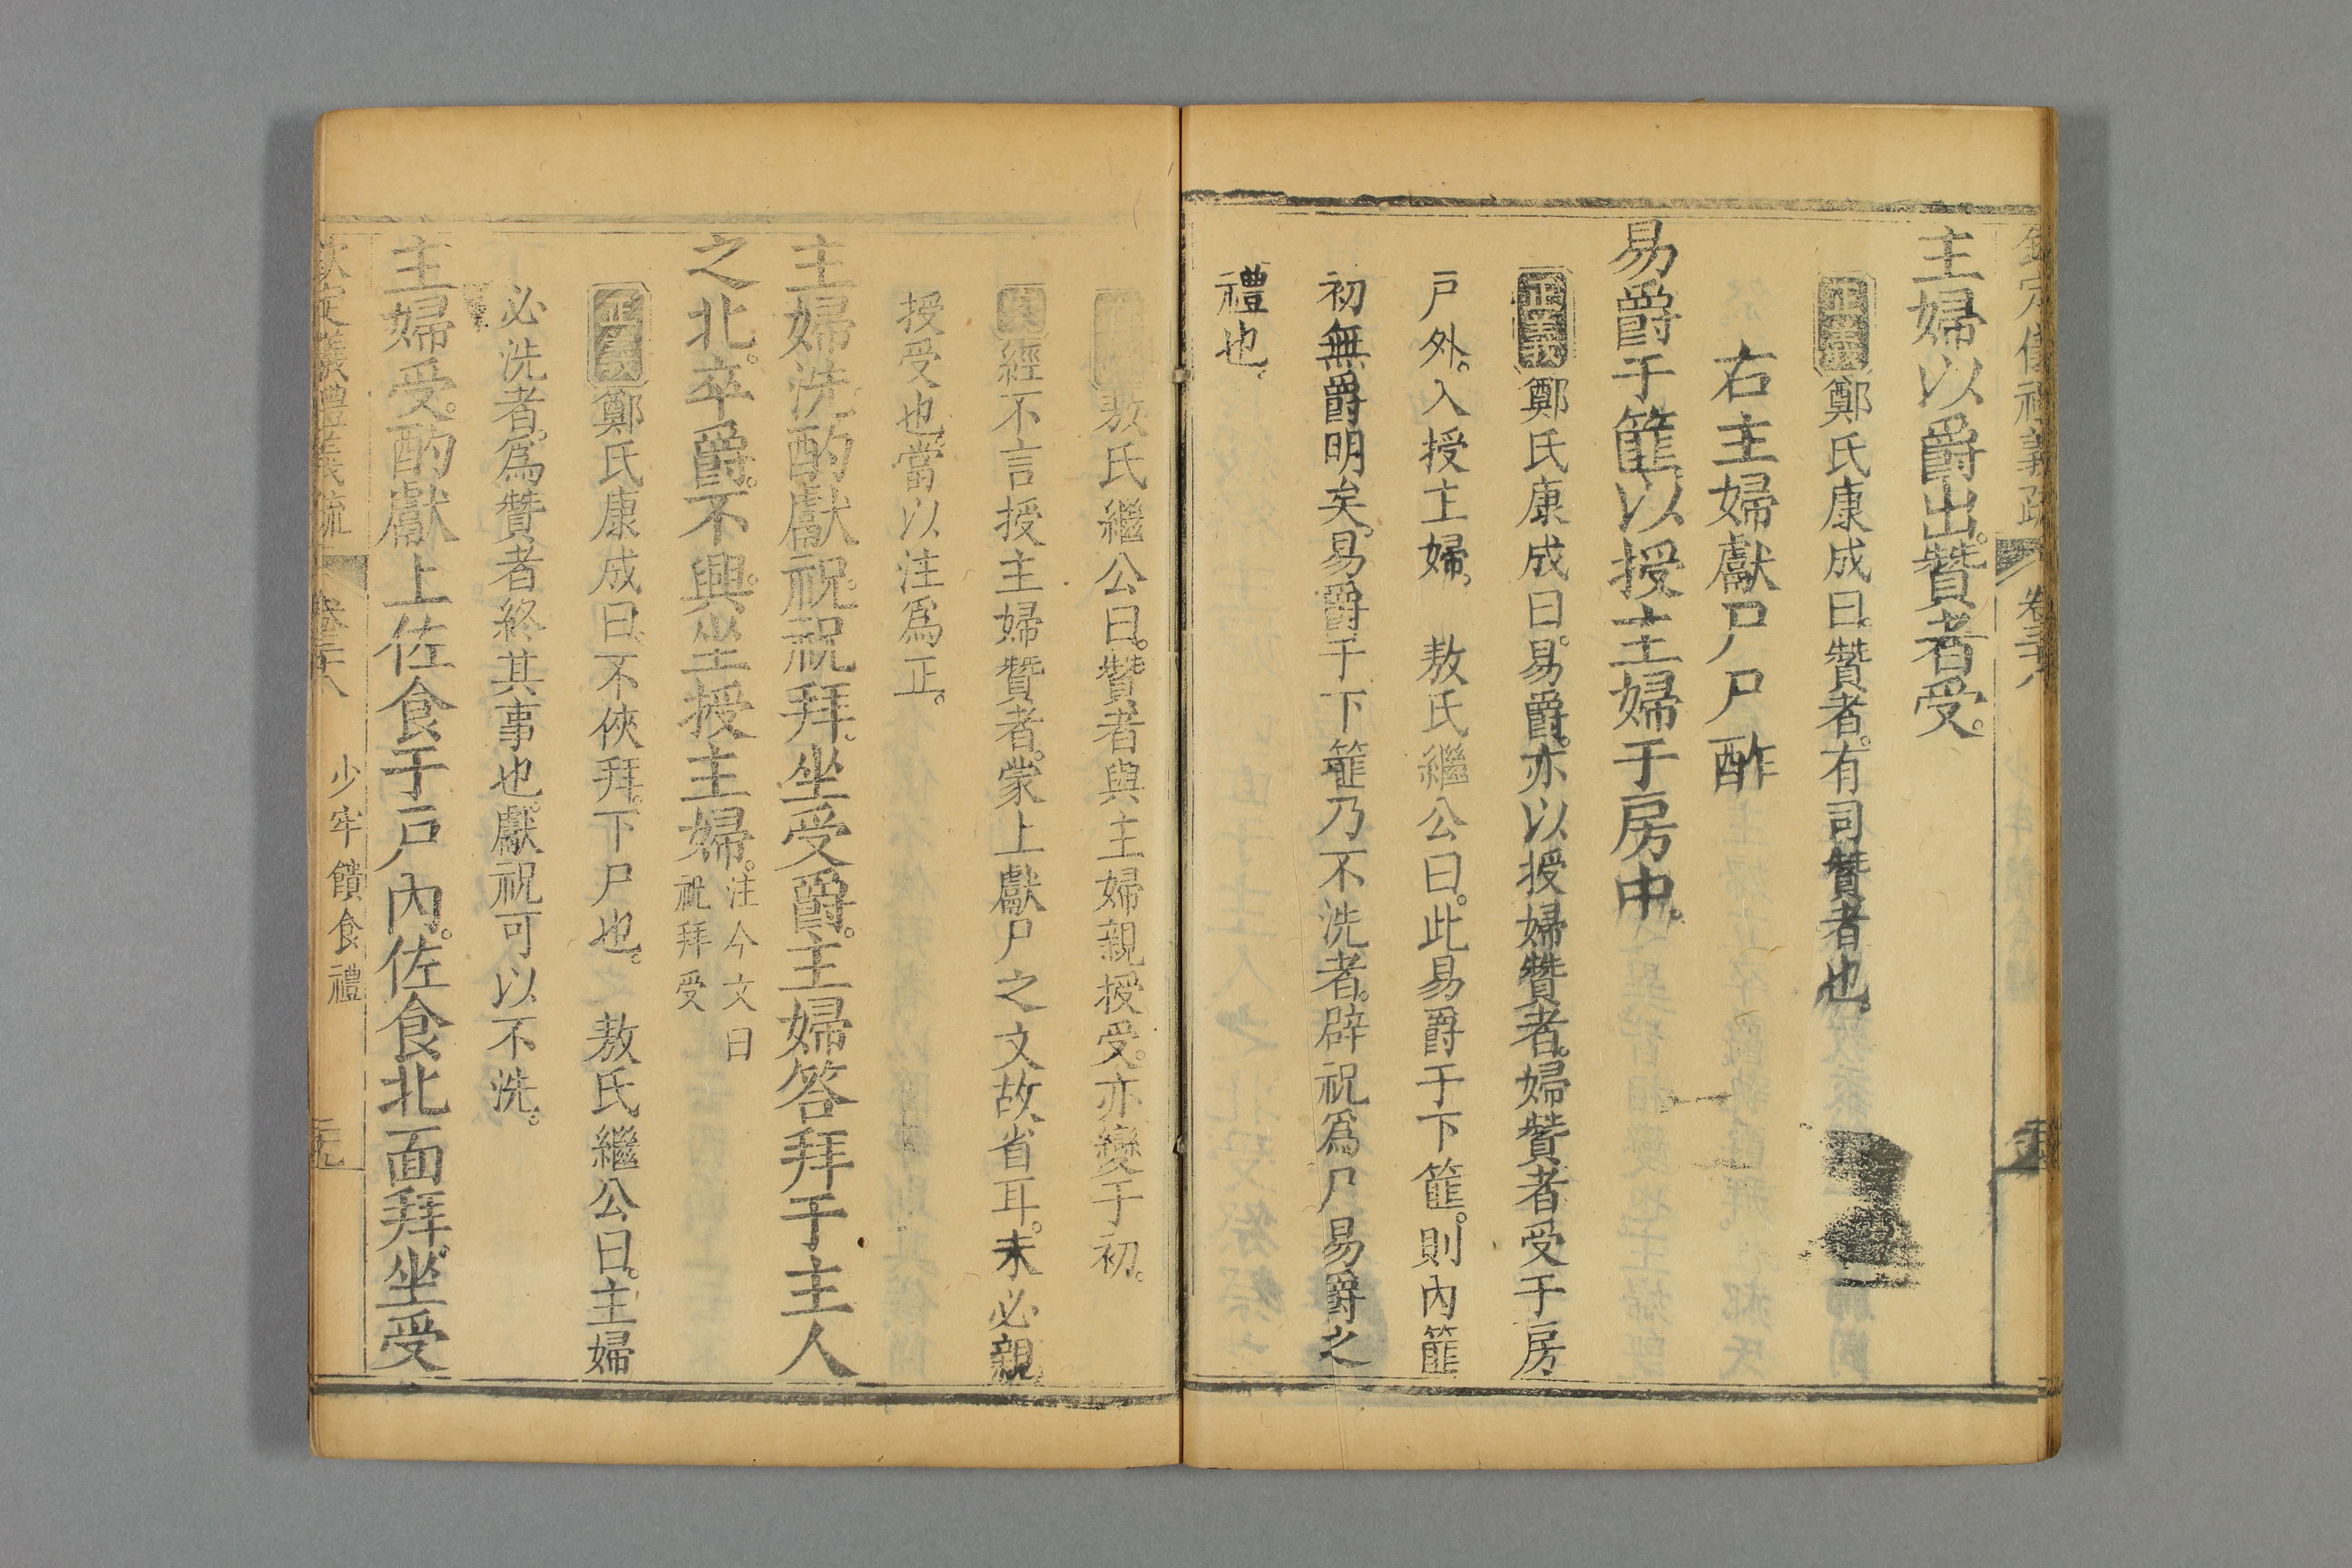 欽定儀禮義疏 卷三十八
主婦以爵出。贊者受。
正義鄭氏康成曰。贊者。有司贊者也。
右主婦獻尸尸酢
易爵于篚以授主婦于房中。
正義鄭氏康成曰。易爵。亦以授婦贊者。婦贊者受于房
戶外。入授主婦。 敖氏繼公曰。此易爵于下篚。則內篚
初無爵明矣。易爵于下篚乃不洗者。辟祝爲尸易爵之
禮也。
敖氏繼公曰。贊者與主婦親授受。亦變于初。
經不言授主婦贊者。蒙上獻尸之文故省耳。未必親
授受也。當以注爲正。
主婦洗。酌獻祝。祝拜。坐受爵。主婦答拜于主人
之北。卒爵。不興。坐授主婦。注今文曰祝拜受
正義鄭氏康成曰。不俠拜。下尸也。 敖氏繼公曰。主婦
必洗者。爲贊者終其事也。獻祝可以不洗。
主婦受。酌獻上佐食于戶內。佐食北面拜。坐受
欽定儀禮義疏 卷三十八 少牢饋食禮